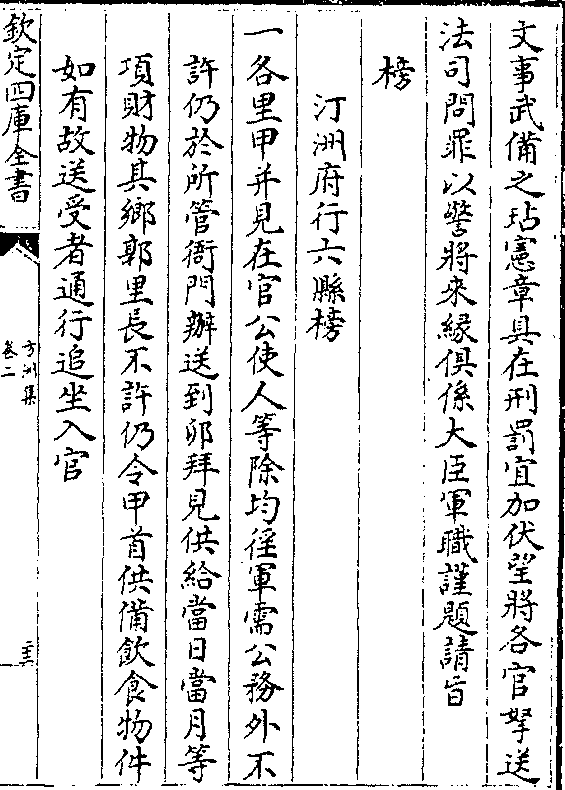 文事武備之玷憲章具在刑罰宜加伏望將各官拏送
法司問罪以警將來緣俱係大臣軍職謹題請旨
榜
汀洲府行六縣榜
一各里甲并見在官公使人等除均徭軍需公務外不
許仍於所管衙門辦送到卯拜見供給當日當月等
項財物其鄉郭里長不許仍令甲首供備飲食物件
如有故送受者通行追坐入官
欽定四庫全書
方洲集
卷二